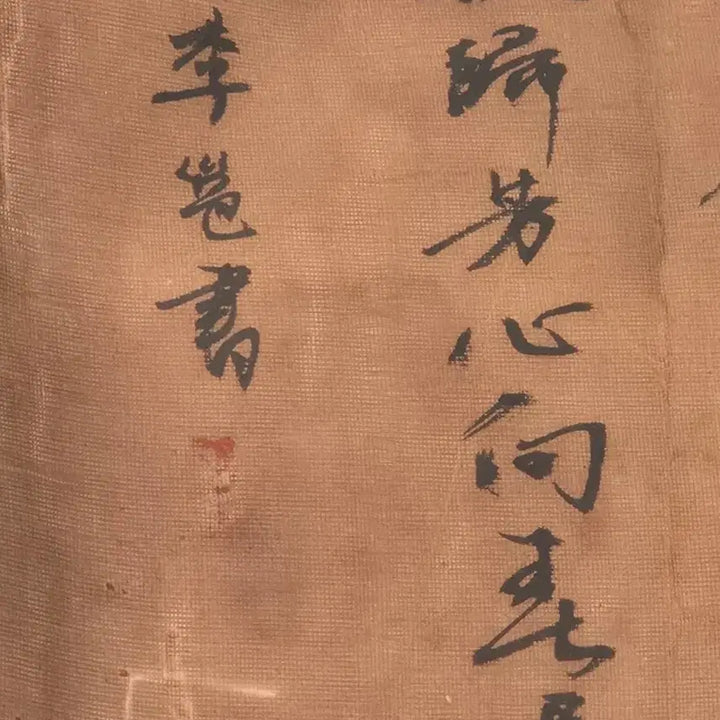 歸芳心向春
李邕書